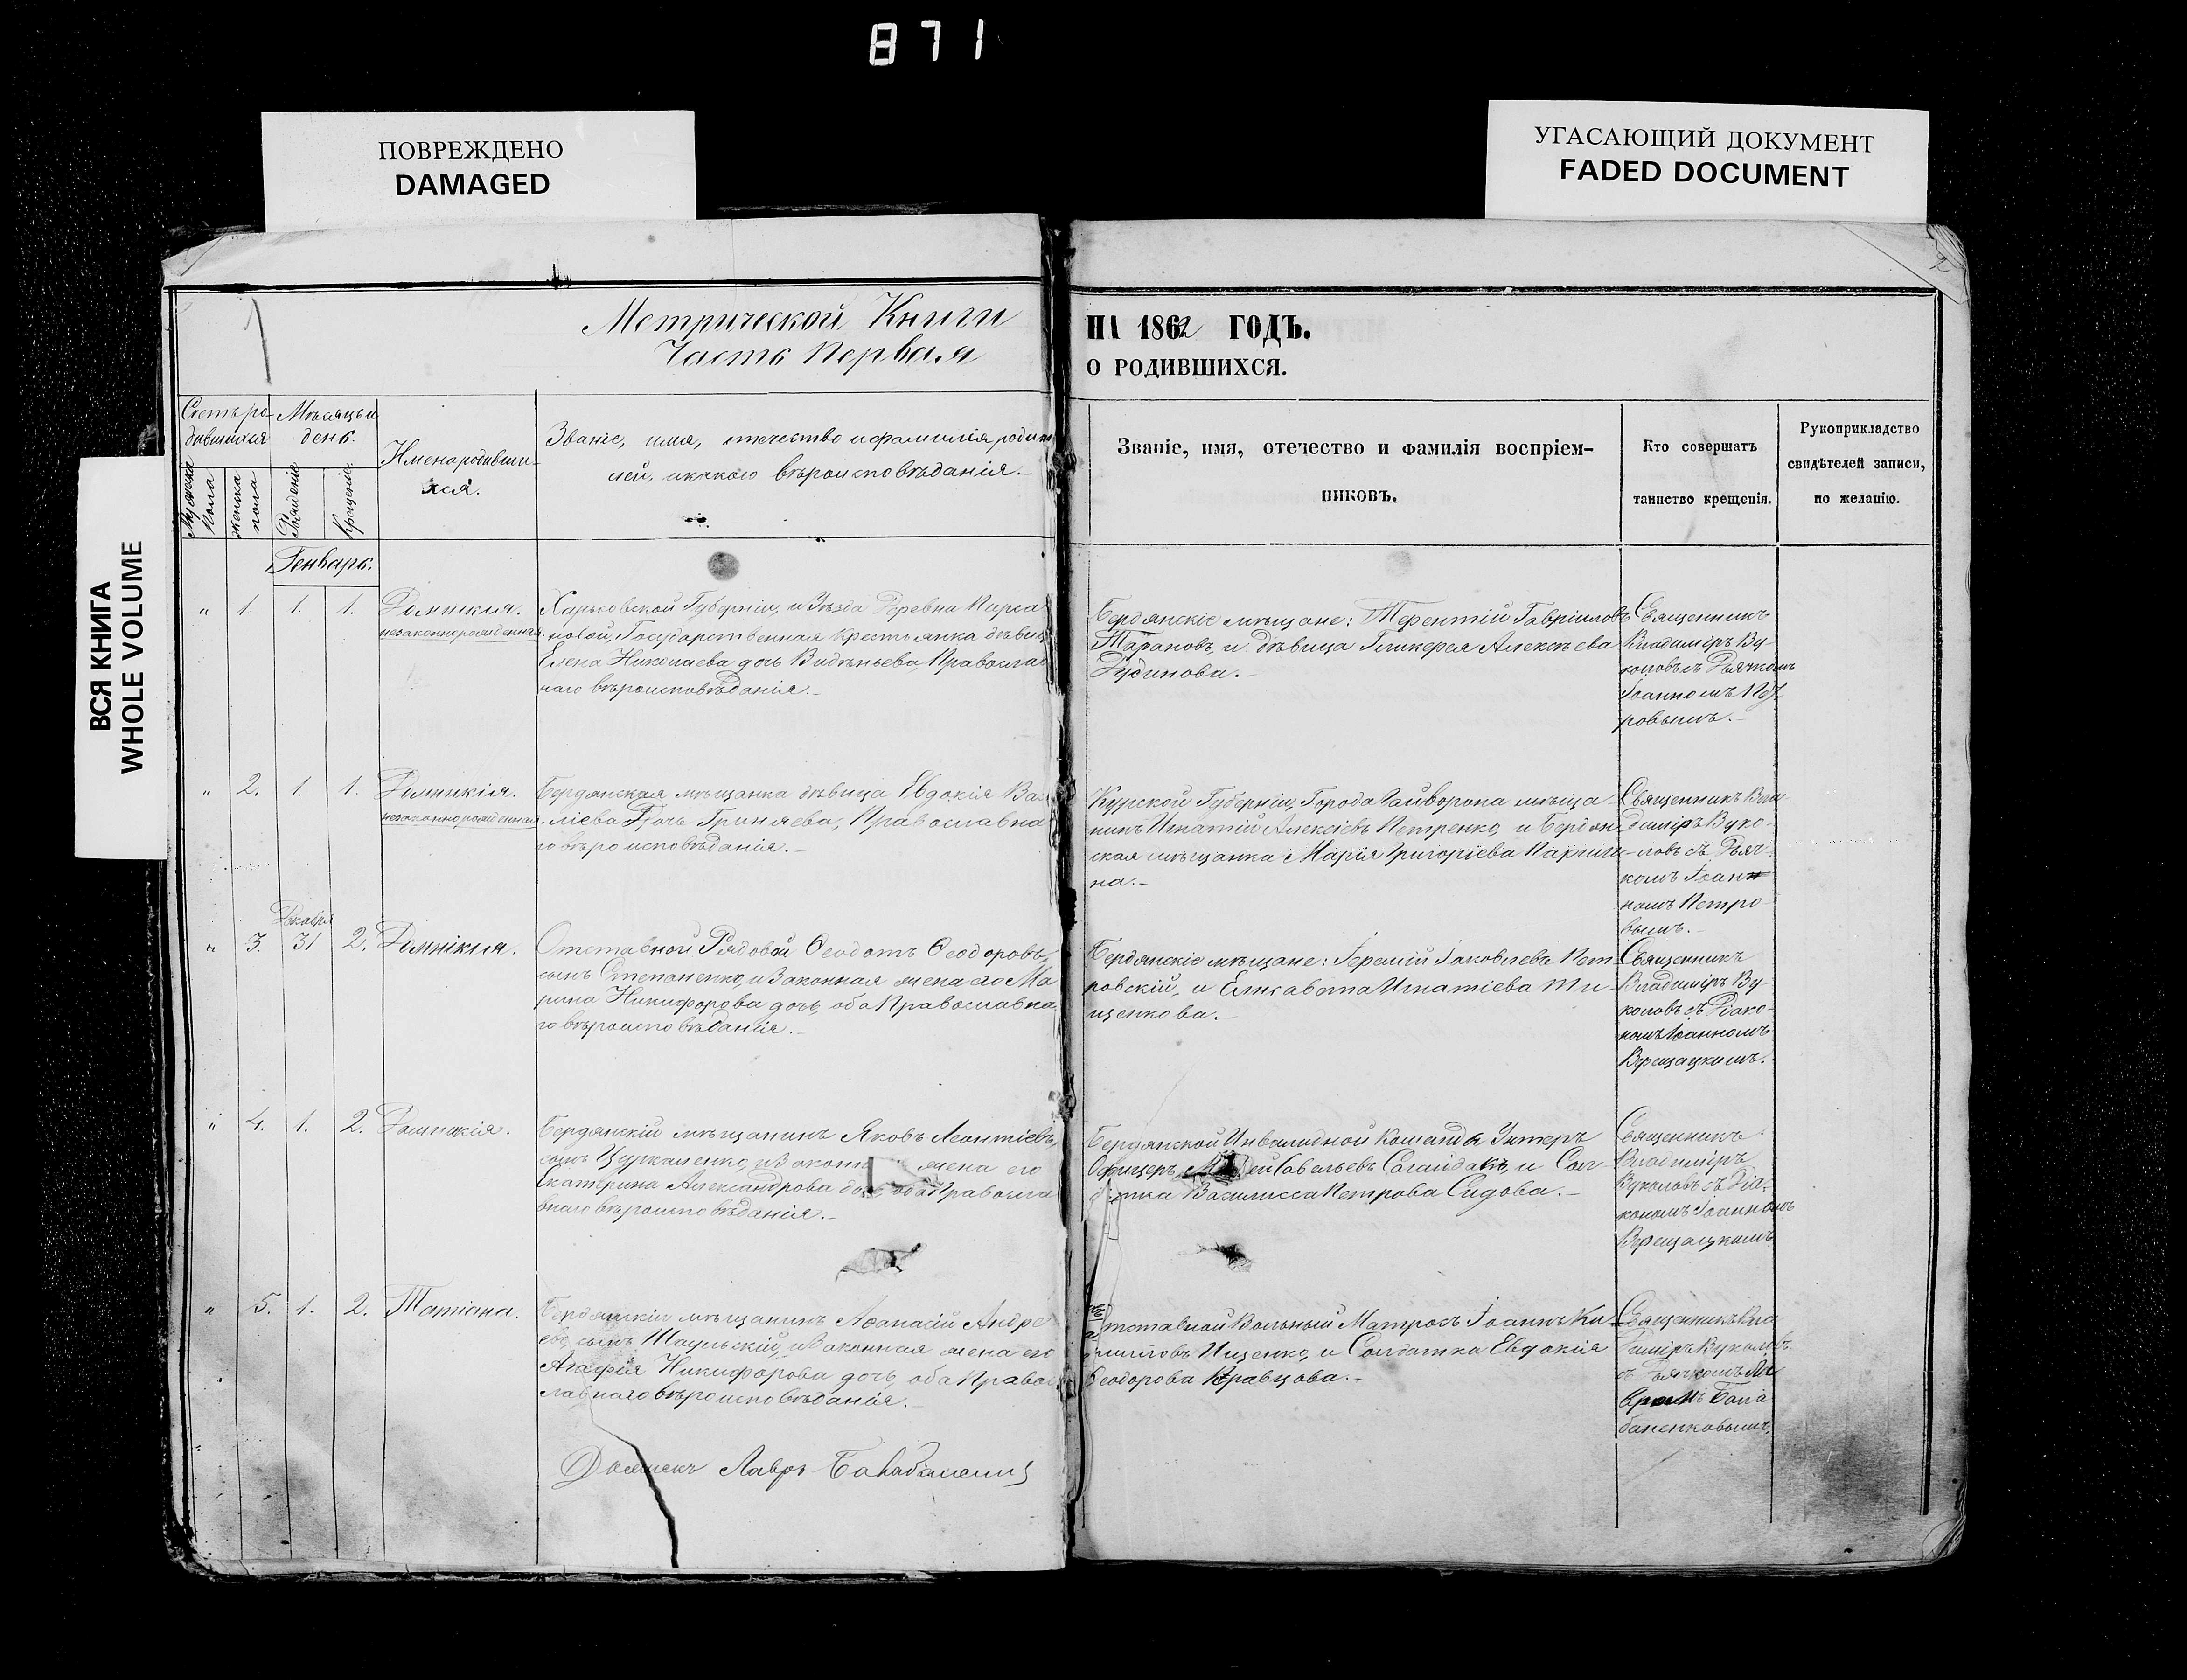 871
ПОВРЕЖДЕНО
DAMAGED
УГАСАЮЩИЙ ДОКУМЕНТ
FADED DOCUMENT
ВСЯ КНИГА
WHOLE VOLUME
Метрической Книги
Часть Первая
1862 ГОДЪ.
О РОДИВШИХСЯ.
Счетъ ро-
дившихся
Мужеска
пола
Женска
пола
Мѣсяцъ и
день.
Рожденія
Крещенія.
Имена родивши-
хся.
Званіе, имя, отечество и фамилія родите
лей, и какого вѣроисповѣданія.
Званіе, имя, отечество и фамилія воспріем-
никовъ.
Кто совершатъ
таинство крещенія.
Рукоприкладство
свидѣтелей записи,
по желанію.
Генварь.
" 1. 1. 1. Домникія.
незаконнорожденная.
Харьковской Губерніи, и Уѣзда Деревни
новой, Государственная крестьянка дѣвица
Елена Николаева дочь Православ
наго вѣроисповѣданія.
Бердянскіе мѣщане: Терентій Гавріиловъ
Тарановъ, и дѣвица Гликерея Алексѣева
Священникъ
Владиміръ Ву-
коловъ съ Дьячкомъ
Іоанномъ Пет
ровымъ.
" 2. 1. 1. Домникія.
незаконнорожденная.
Бердянская мѣщанка дѣвица Евдокія Ва
дочь Гриняева, Православна
го вѣроисповѣданія.
Курской Губерніи, Города Хайворона мѣща
нинъ Игнатій Алексіевъ Петренко, и Бердян
ская мѣщанка Марія Григоріева
на.
Священникъ Вла
диміръ Вуко-
ловъ съ Дьяч
комъ Іоан
номъ Петро
вымъ.
Декабря
" 3. 31 2. Домнікія.
Отставной Рядовой Ѳеодотъ Ѳеодоровъ
сынъ Степаненко, и законная жена его Ма
рина Никифорова дочь, оба Православна
го вѣроисповѣданія.
Бердянскіе мѣщане: Іеремій Іаковлева Пет
ровскій, и Елисавета Игнатіева Ти-
щенкова.
Священникъ
Владиміръ Ву
коловъ съ Діако-
номъ Іоанномъ
Верещацкимъ.
" 4. 1. 2. Домникія.
Бердянскій мѣщанинъ Яковъ Леонтіевъ
сынъ Цуркаленко, и закон жена его
Екатерина Александрова дочь оба Правосла
внаго вѣроисповѣданія.
Бердянской Инвалидной Команды Унтеръ
Офицеръ Савельевъ Сагайдакъ, и Сол
Василисса Петрова Сидова.
Священникъ
Владиміръ
Вуколовъ съ Діа
кономъ Іоанномъ
Верещацкимъ
" 5. 1. 2. Татіана.
Бердянскій мѣщанинъ Аѳанасій Андре
евъ сынъ Шадльскій, и законная жена его
Агафія Никифорова дочь, оба Правос
лавнаго вѣроисповѣданія.
Отставной Вольный Матросъ Іоаннъ Ки
рилловъ Ищенко, и Солдатка Евдокія
Ѳеодорова Кравцова.
Священникъ Вла
диміръ Вуколовъ
съ Дьячкомъ Ла
вромъ Бала
баненковымъ.
Дьячекъ Лавръ Балабаненко